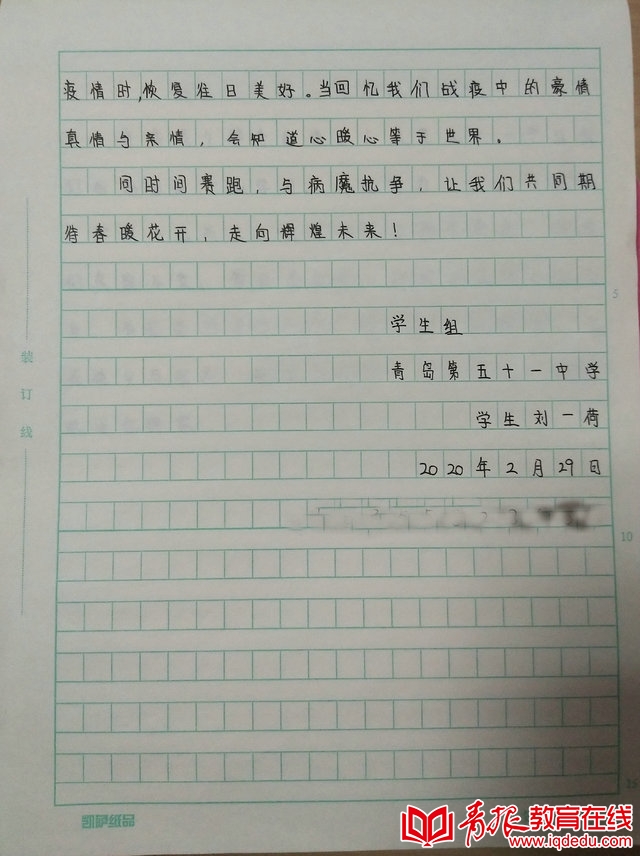 疫情时,恢复往日美好。当回忆我们战疫中的豪情
真情与亲情，会知道心暖心等于世界。
同时间赛跑，与病魔抗争，让我们共同期
待春暖花开，走向辉煌未来！
5
学生组
装订线
青岛第五十一中学
学生刘一荷
2020年2月29日
10
15
凯萨纸品
青报教育在线
www.iqdedu.com